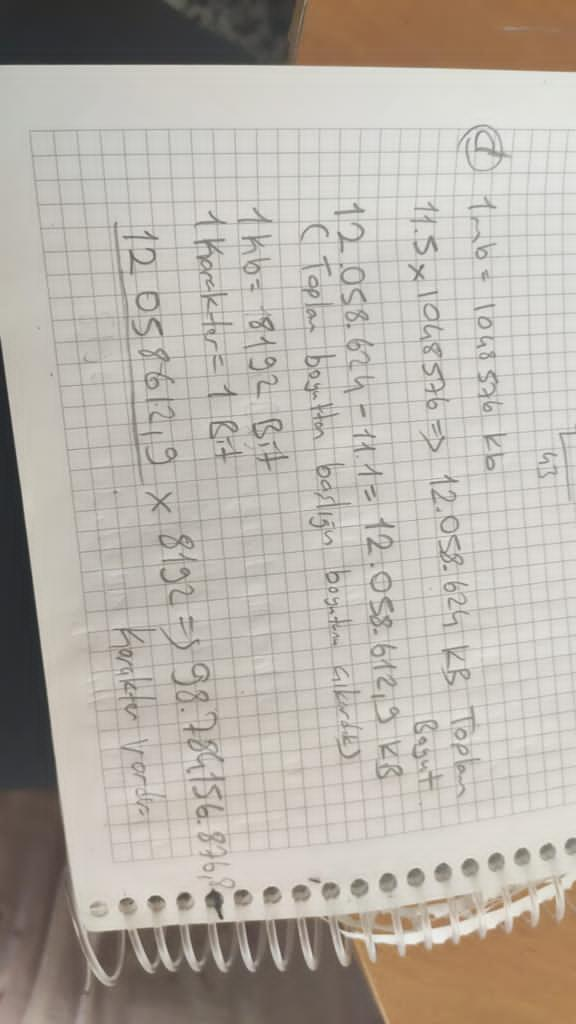 43
① 1mb = 1048576 kb
11.5 x 1048576 => 12.058.624 KB Toplam
Boyut
12.058.624 - 11.1 = 12.058.612,9 KB
( Toplam boyuttan başlığın boyutunu çıkardık)
1 kb = 8192 Bit
1 Karakter = 1 Bit
12 058612,9 x 8192 => 98.784156.876,8
Karakter Vardır